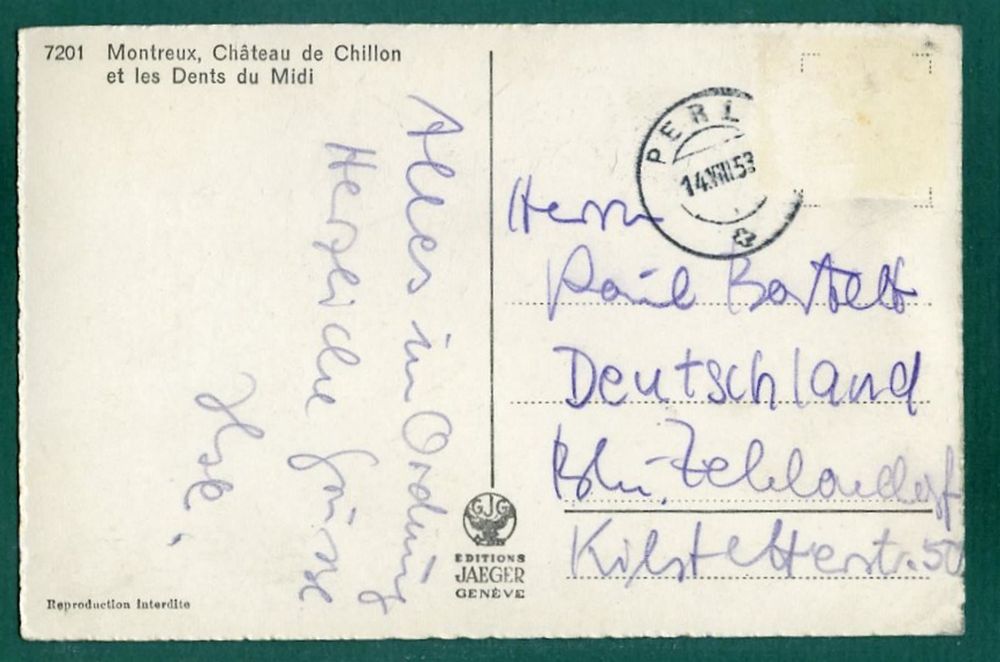 7201 Montreux, Château de Chillon
et les Dents du Midi
Alles in Ordnung
Herzliche Grüsse
PERL
14.VIII.53
Herrn
Paul Bartelt
Deutschland
Bln.-Zehlendorf
Kilstetterstr. 50
GJG
EDITIONS
JAEGER
GENÈVE
Reproduction interdite